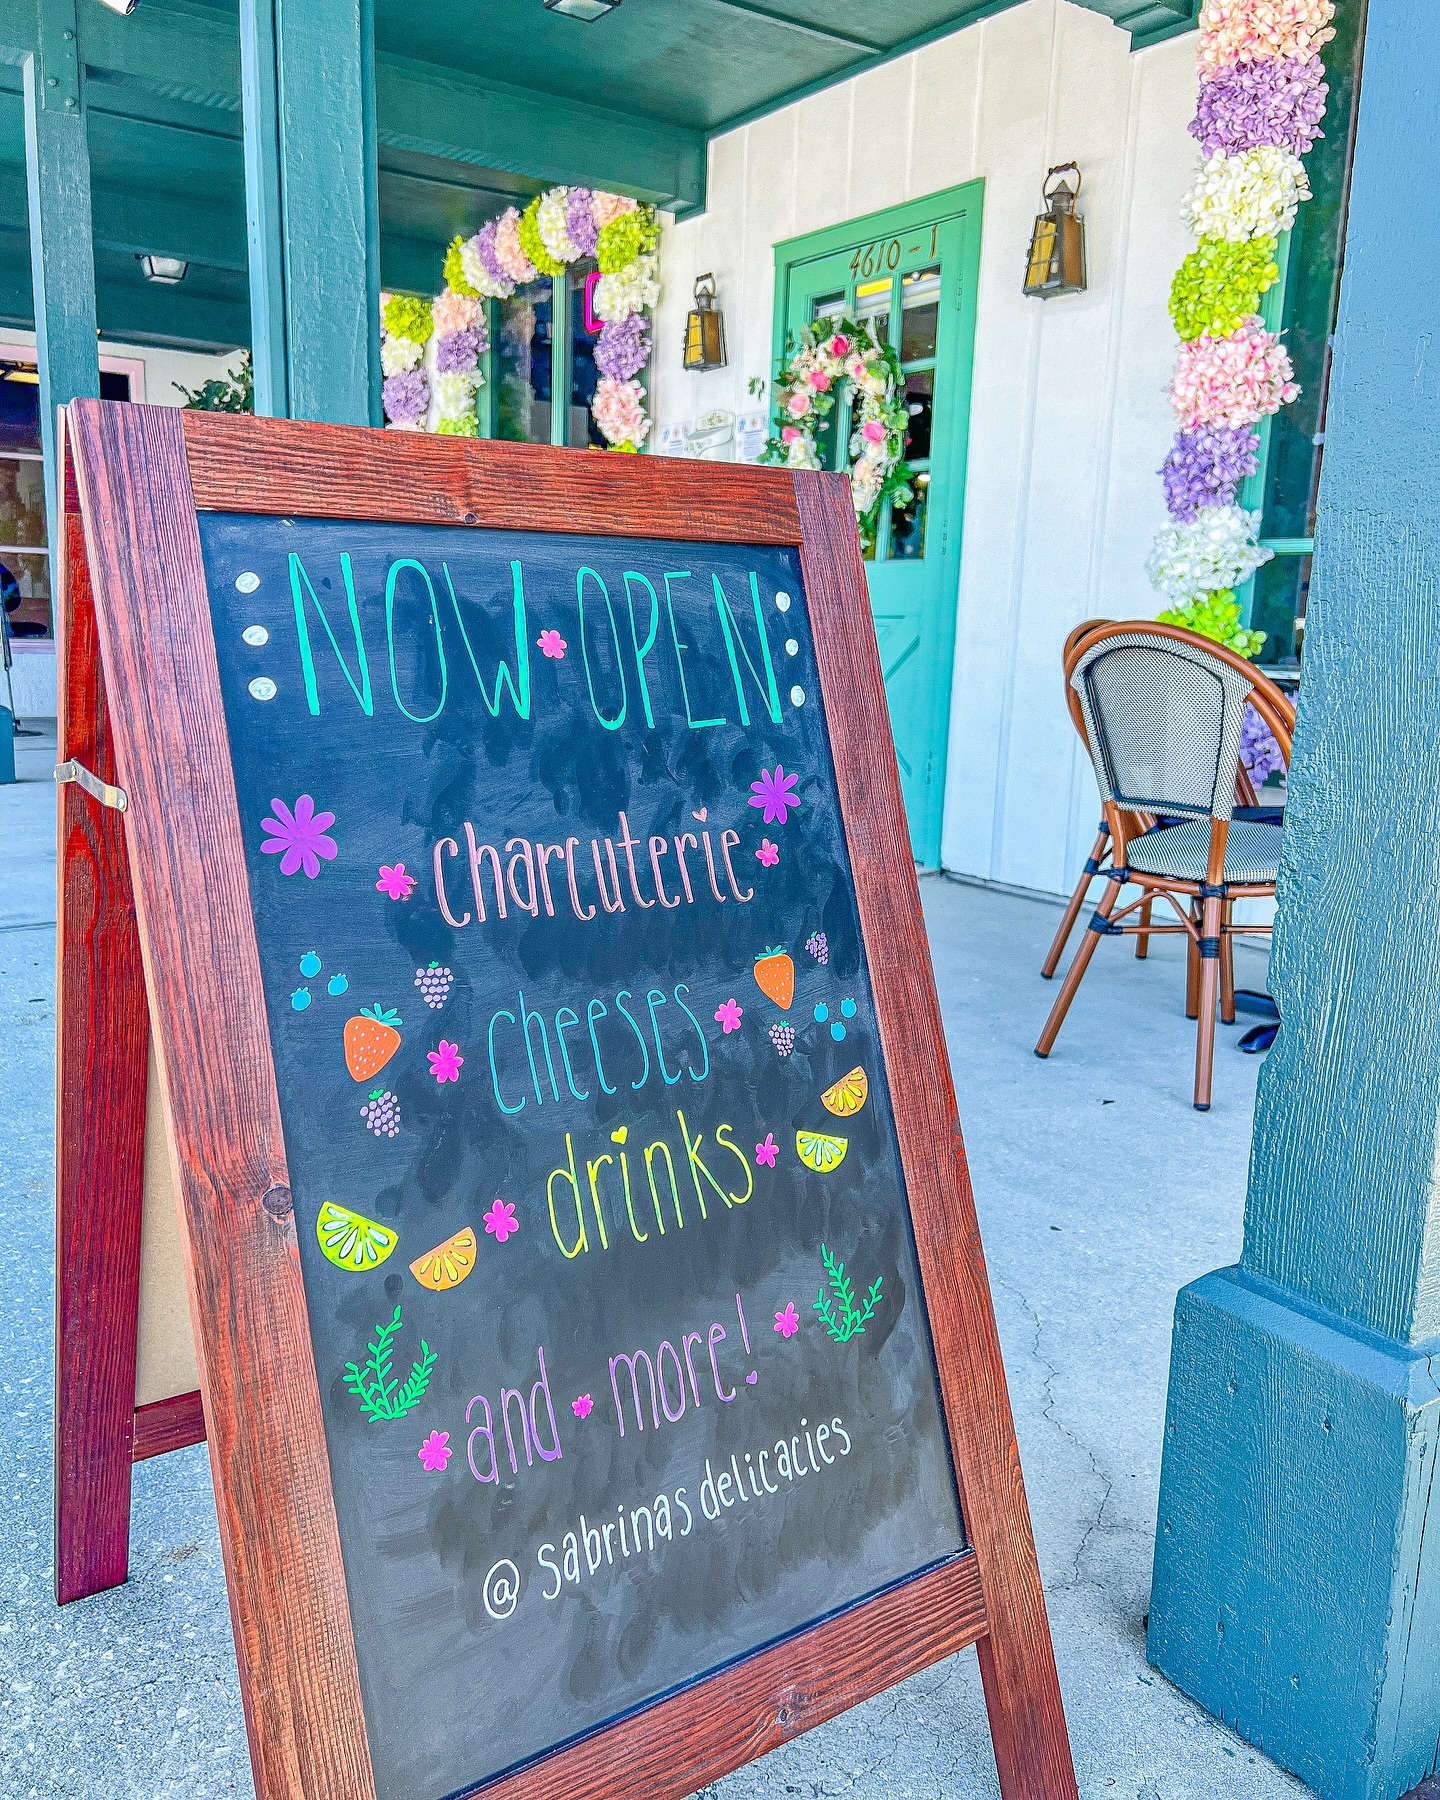 4610-1
NOW OPEN
charcuterie
cheeses
drinks
and more!
@sabrinasdelicacies